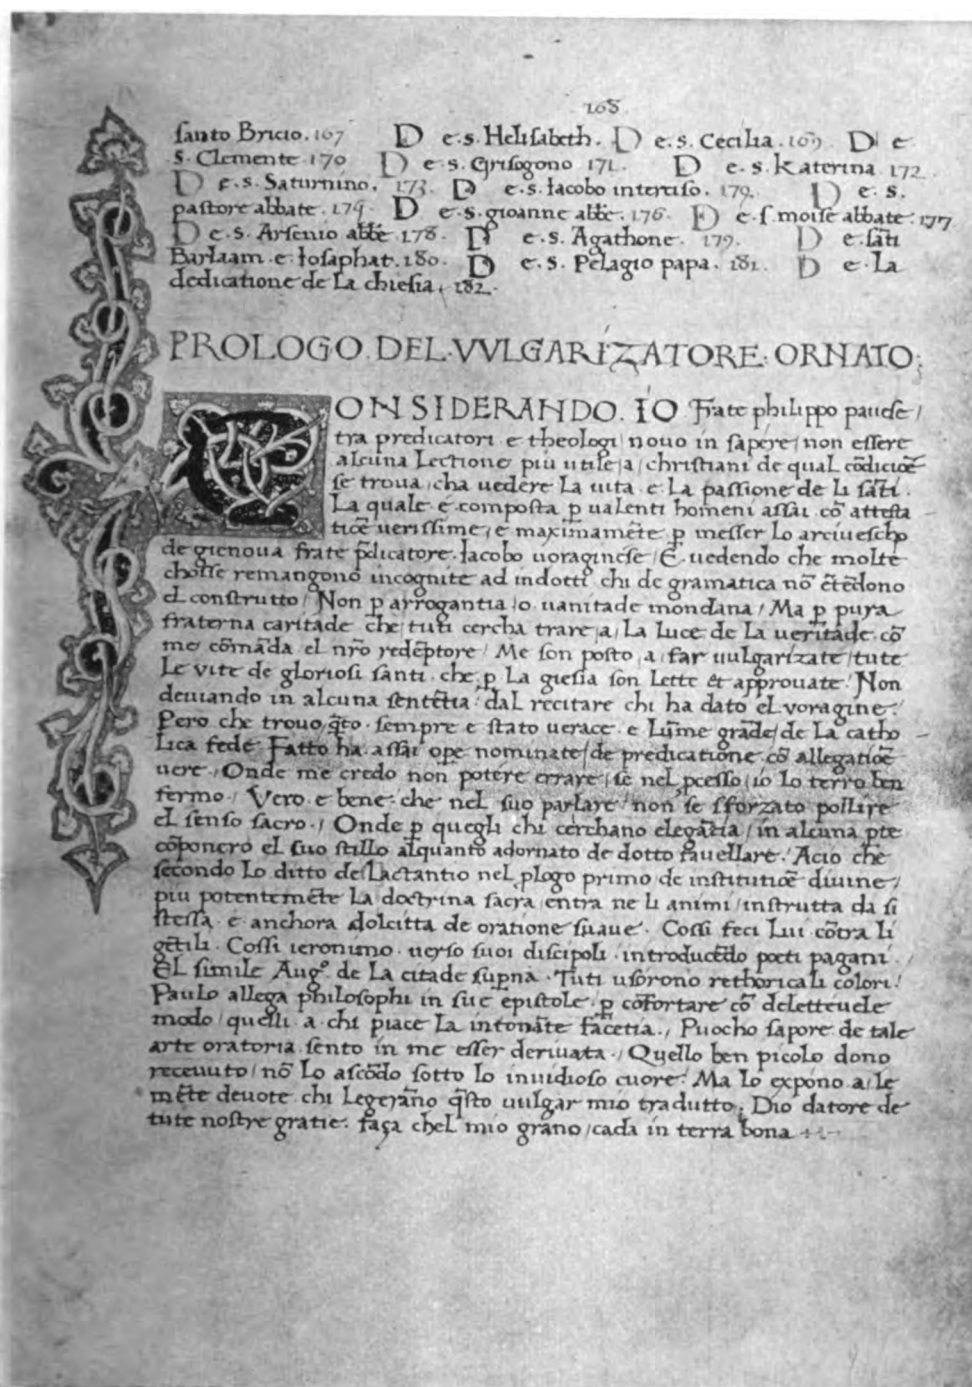 168
santo Bricio. 167 D e. s. Helisabeth. D e. s. Cecilia. 169. D e
s. Clemente. 170 D e. s. Grisogono 171. D e. s. Katerina. 172.
D e. s. Saturnino. 173. D e. s. Iacobo interciso. 174. D e. s.
pastore abbate. 175. D e. s. gioanne abbe. 176. D e. s. moise abbate. 177.
D e. s. Arsenio abbe. 178. D e. s. Agathone. 179. D e. sãti
Barlaam. e. Iosaphat. 180. D e. s. Pelagio papa. 181. D e. La
dedicatione de La chiesia. 182.
PROLOGO. DEL. VVLGARIZATORE. ORNATO;
CONSIDERANDO. IO Frate philippo pauese /
tra predicatori e theologi nouo in sapere / non essere
alcuna Lectione piu utile / a / christiani de qual cõdiciõe
se troua / cha uedere La uita e La passione de li sãti.
La quale e composta p ualenti homeni assai cõ attesta
tiõe uerissime / e maximamẽte p messer Lo arciuescho
de gienoua frate p̃dicatore. Iacobo uoraginese / E uedendo che molte
chosse remangono incognite ad indotti chi de gramatica nõ ẽtẽdono
el construtto / Non p arrogantia / o uanitade mondana / Ma p pura
fraterna caritade che tuti cercha trare / a / La luce de La ueritade cõ
me cõmãda el nr̃o redẽptore / Me son posto / a / far uulgarizate / tute
Le vite de gloriosi santi. che p La giesia son Lette et approuate / Non
deuiando in alcuna sentẽtia / dal recitare chi ha dato el voragine /
Pero che trouo q̃sto. sempre e stato uerace. e Lũme grãde / de La catho
Lica fede. Fatto ha assai ope nominate / de predicatione cõ allegatiõe
uere / Onde me credo non potere errare / se nel pcesso / io Lo terro ben
fermo / Vero e bene che nel suo parlare / non se sforzato pollire
el senso sacro / Onde p quegli chi cerchano elegãtia / in alcuna pte
cõponero el suo stillo alquanto adornato de dotto fauellare / Acio che
secondo Lo ditto de Lactantio nel plogo primo de institutiõe diuine /
piu potentemẽte La doctrina sacra entra ne li animi / instrutta da si
stessa e anchora dolcitta de oratione suaue. Cossi feci Lui cõtra li
gẽtili. Cossi ieronimo uerso suoi discipoli introducẽdo poeti pagani /
El simile Augº. de La citade supna. Tuti usorono rethoricali colori /
Paulo allega philosophi in sue epistole. p cõfortare cõ deletteuele
modo / quelli a chi piace La intonãte facetia / Puocho sapore de tale
arte oratoria sento in me esser deriuata / Quello ben picolo dono
receuuto / nõ Lo ascõdo sotto Lo inuidioso cuore / Ma Lo expono a le
mẽte deuote chi Legerãno q̃sto uulgar mio tradutto; Dio datore de
tute nostre gratie. faça chel mio grano / cada in terra bona